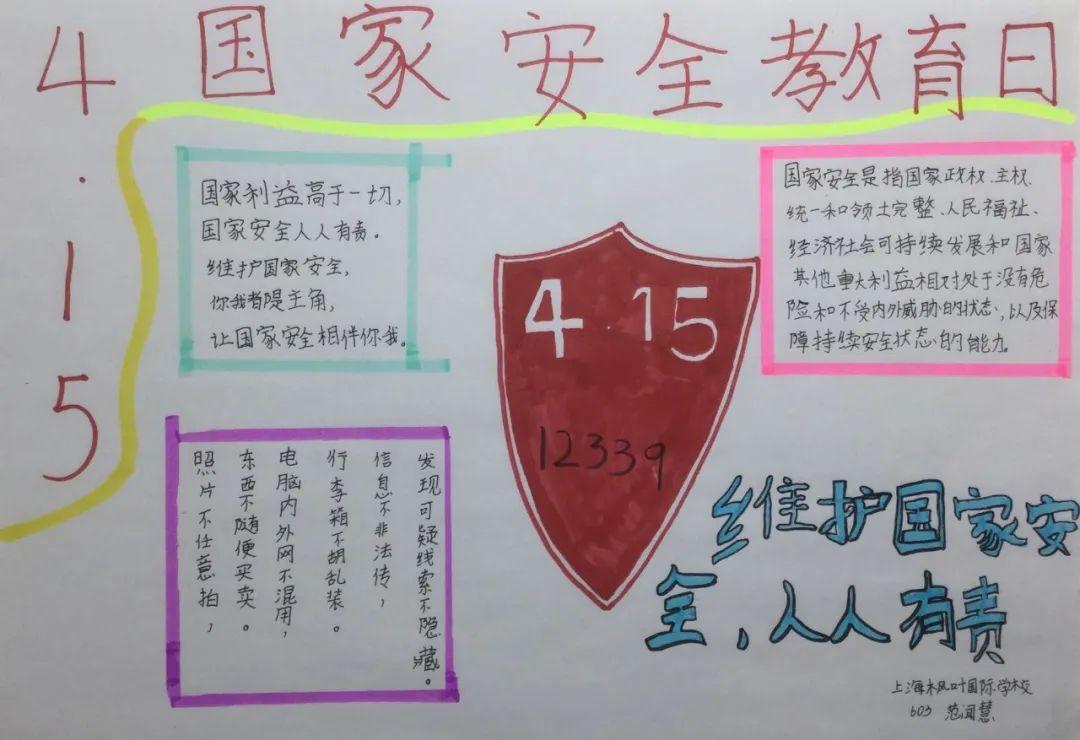 4·15
国家安全教育日
国家利益高于一切,
国家安全人人有责。
维护国家安全,
你我都是主角,
让国家安全相伴你我。
4.15
12339
国家安全是指国家政权、主权、
统一和领土完整、人民福祉、
经济社会可持续发展和国家
其他重大利益相对处于没有危
险和不受内外威胁的状态,以及保
障持续安全状态的能力。
发现可疑线索不隐藏。
信息不非法传,
行李箱不胡乱装。
电脑内外网不混用,
东西不随便买卖。
照片不任意拍,
维护国家安
全,人人有责
上海枫叶国际学校
603 范闻慧